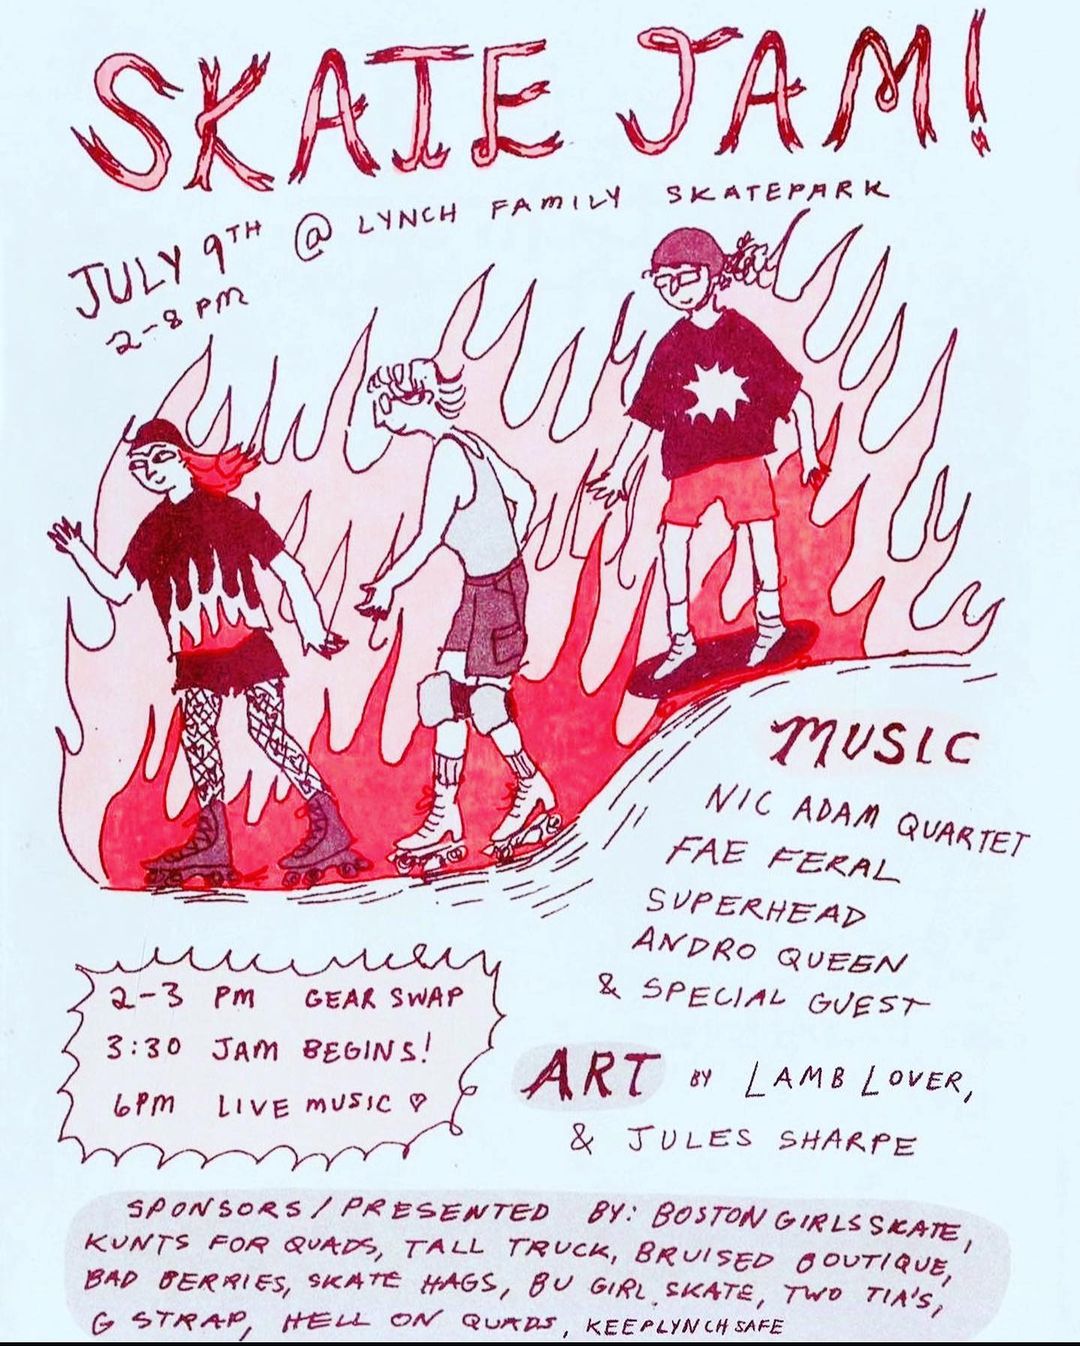 SKATE JAM!
JULY 9TH @ LYNCH FAMILY SKATEPARK
2-8 PM
MUSIC
NIC ADAM QUARTET
FAE FERAL
SUPERHEAD
ANDRO QUEEN
& SPECIAL GUEST
2-3 PM GEAR SWAP
3:30 JAM BEGINS!
6PM LIVE MUSIC ♡
ART BY LAMB LOVER,
& JULES SHARPE
SPONSORS/PRESENTED BY: BOSTON GIRLS SKATE,
KUNTS FOR QUADS, TALL TRUCK, BRUISED BOUTIQUE,
BAD BERRIES, SKATE HAGS, BU GIRL SKATE, TWO TIA'S,
G STRAP, HELL ON QUADS, KEEPLYNCHSAFE